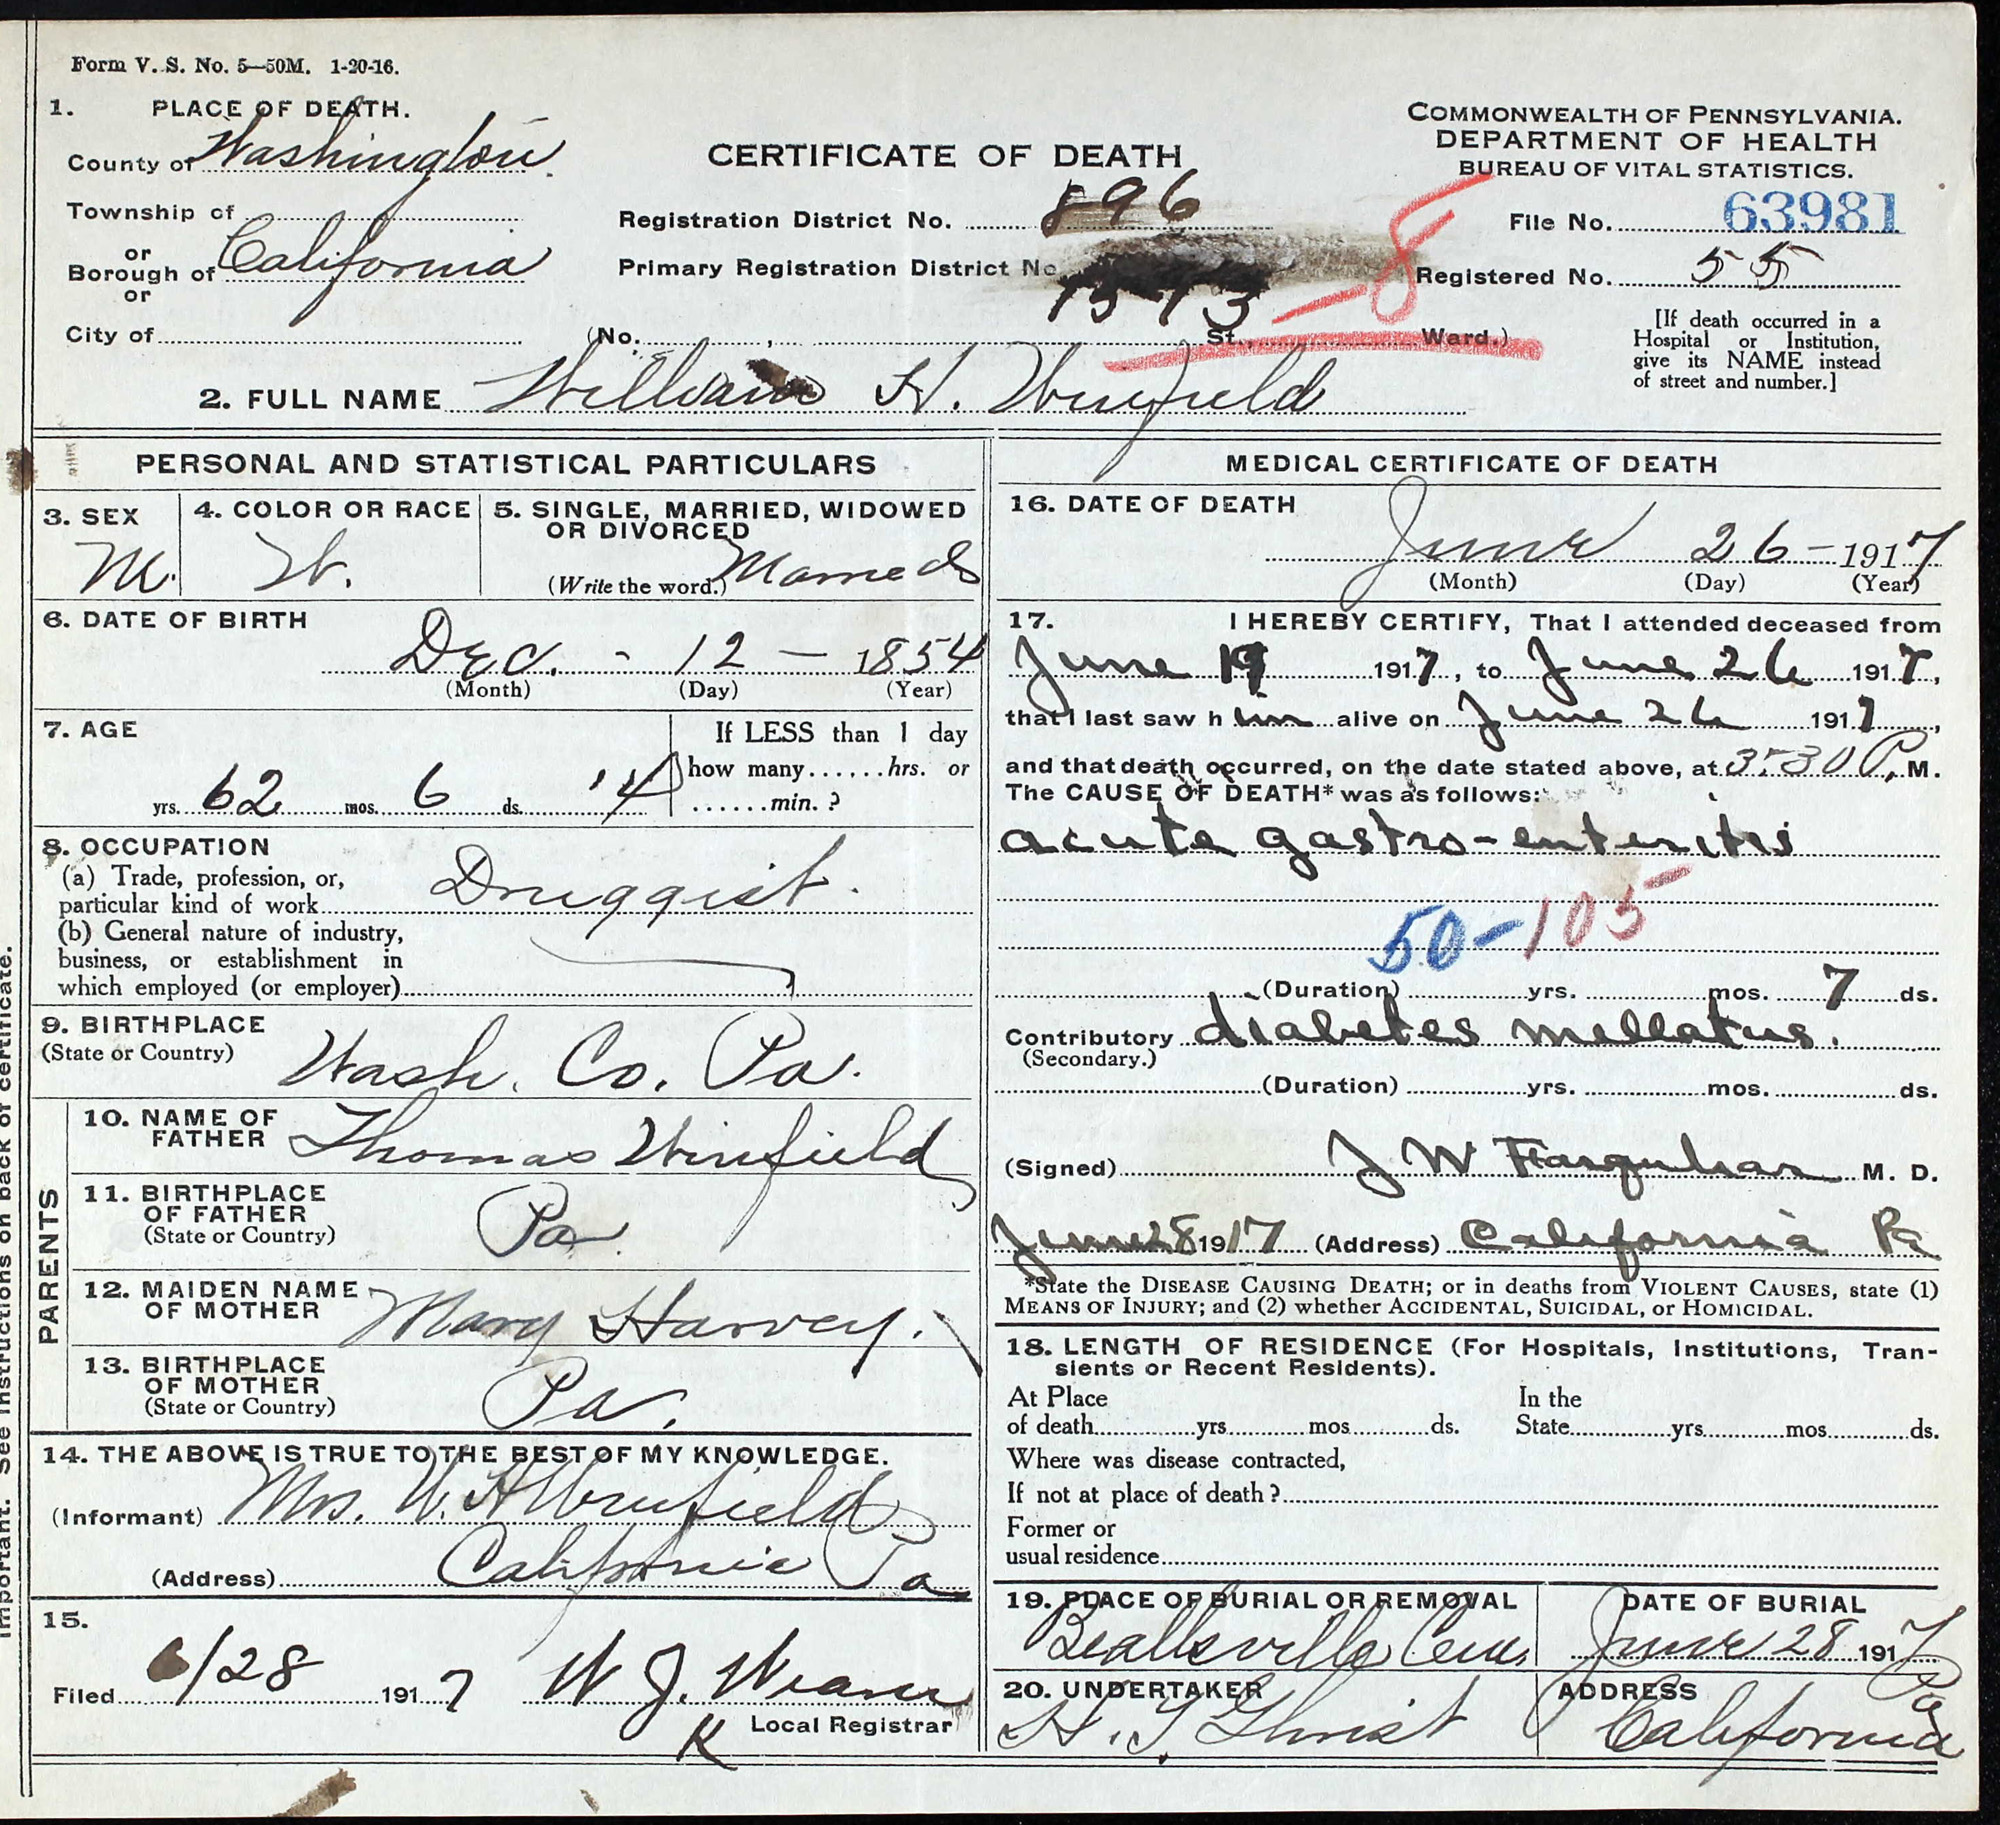 Form V. S. No. 5—50M. 1-20-16.
1. PLACE OF DEATH.
County of Washington
Township of
or
Borough of California
or
City of
CERTIFICATE OF DEATH
Registration District No. 896
Primary Registration District No. 1513 -8
(No. , St., Ward.)
COMMONWEALTH OF PENNSYLVANIA.
DEPARTMENT OF HEALTH
BUREAU OF VITAL STATISTICS.
File No. 63981
Registered No. 55
[If death occurred in a
Hospital or Institution,
give its NAME instead
of street and number.]
2. FULL NAME William H. Winfield
PERSONAL AND STATISTICAL PARTICULARS
3. SEX
M.
4. COLOR OR RACE
W.
5. SINGLE, MARRIED, WIDOWED
OR DIVORCED
(Write the word.) Married
6. DATE OF BIRTH
Dec. - 12 - 1854
(Month) (Day) (Year)
7. AGE
yrs. 62 mos. 6 ds. 14
If LESS than 1 day
how many......hrs. or
......min. ?
8. OCCUPATION
(a) Trade, profession, or,
particular kind of work Druggist.
(b) General nature of industry,
business, or establishment in
which employed (or employer)
9. BIRTHPLACE
(State or Country) Wash. Co. Pa.
PARENTS
10. NAME OF
FATHER Thomas Winfield
11. BIRTHPLACE
OF FATHER
(State or Country) Pa.
12. MAIDEN NAME
OF MOTHER Mary Harvey.
13. BIRTHPLACE
OF MOTHER
(State or Country) Pa.
14. THE ABOVE IS TRUE TO THE BEST OF MY KNOWLEDGE.
(Informant) Mrs. W. H Winfield
(Address) California Pa
15.
Filed 6/28 1917 W J. Weaver
K Local Registrar
MEDICAL CERTIFICATE OF DEATH
16. DATE OF DEATH
June 26 - 1917
(Month) (Day) (Year)
17. I HEREBY CERTIFY, That I attended deceased from
June 19 1917, to June 26 1917,
that I last saw h im alive on June 26 1917,
and that death occurred, on the date stated above, at 3-30 P. M.
The CAUSE OF DEATH* was as follows:
acute gastro-enteritis
50-105
(Duration) yrs. mos. 7 ds.
Contributory diabetes mellatus.
(Secondary.)
(Duration) yrs. mos. ds.
(Signed) J W Farquhar M. D.
June 28 1917 (Address) California Pa
*State the DISEASE CAUSING DEATH; or in deaths from VIOLENT CAUSES, state (1)
MEANS OF INJURY; and (2) whether ACCIDENTAL, SUICIDAL, or HOMICIDAL.
18. LENGTH OF RESIDENCE (For Hospitals, Institutions, Tran-
sients or Recent Residents).
At Place
of death yrs mos ds.
In the
State yrs mos ds.
Where was disease contracted,
If not at place of death?
Former or
usual residence
19. PLACE OF BURIAL OR REMOVAL
Beallsville Cem.
DATE OF BURIAL
June 28 1917
20. UNDERTAKER
H. Ghrist
ADDRESS
California Pa
important. See instructions on back of certificate.